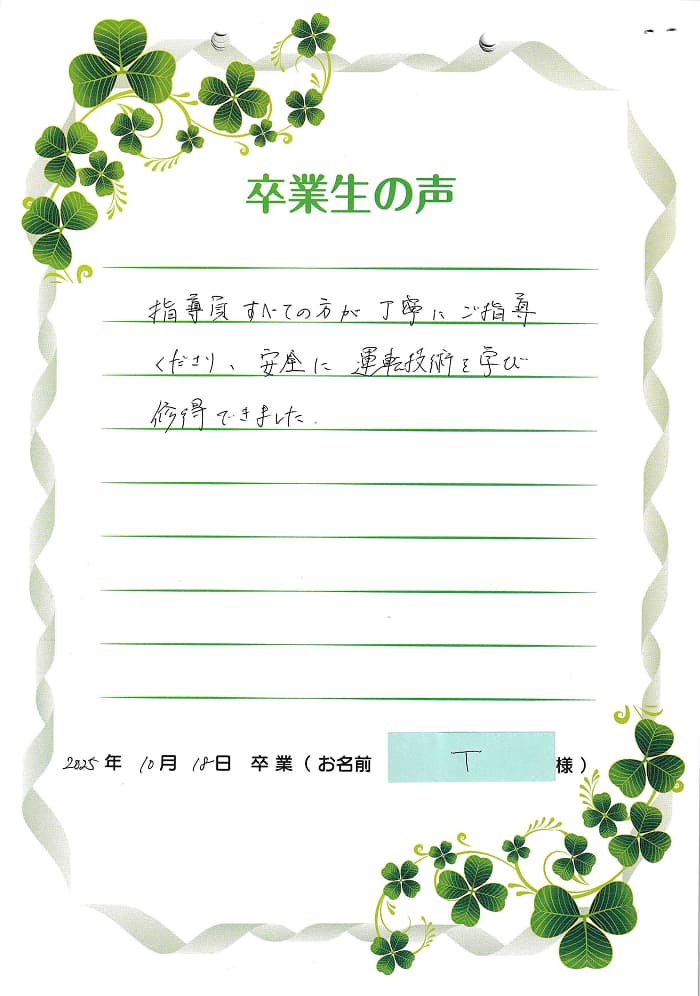 卒業生の声
指導員すべての方が丁寧にご指導
くださり、安全に運転技術を学び
修得できました.
2025年 10月 18日 卒業(お名前 T 様)